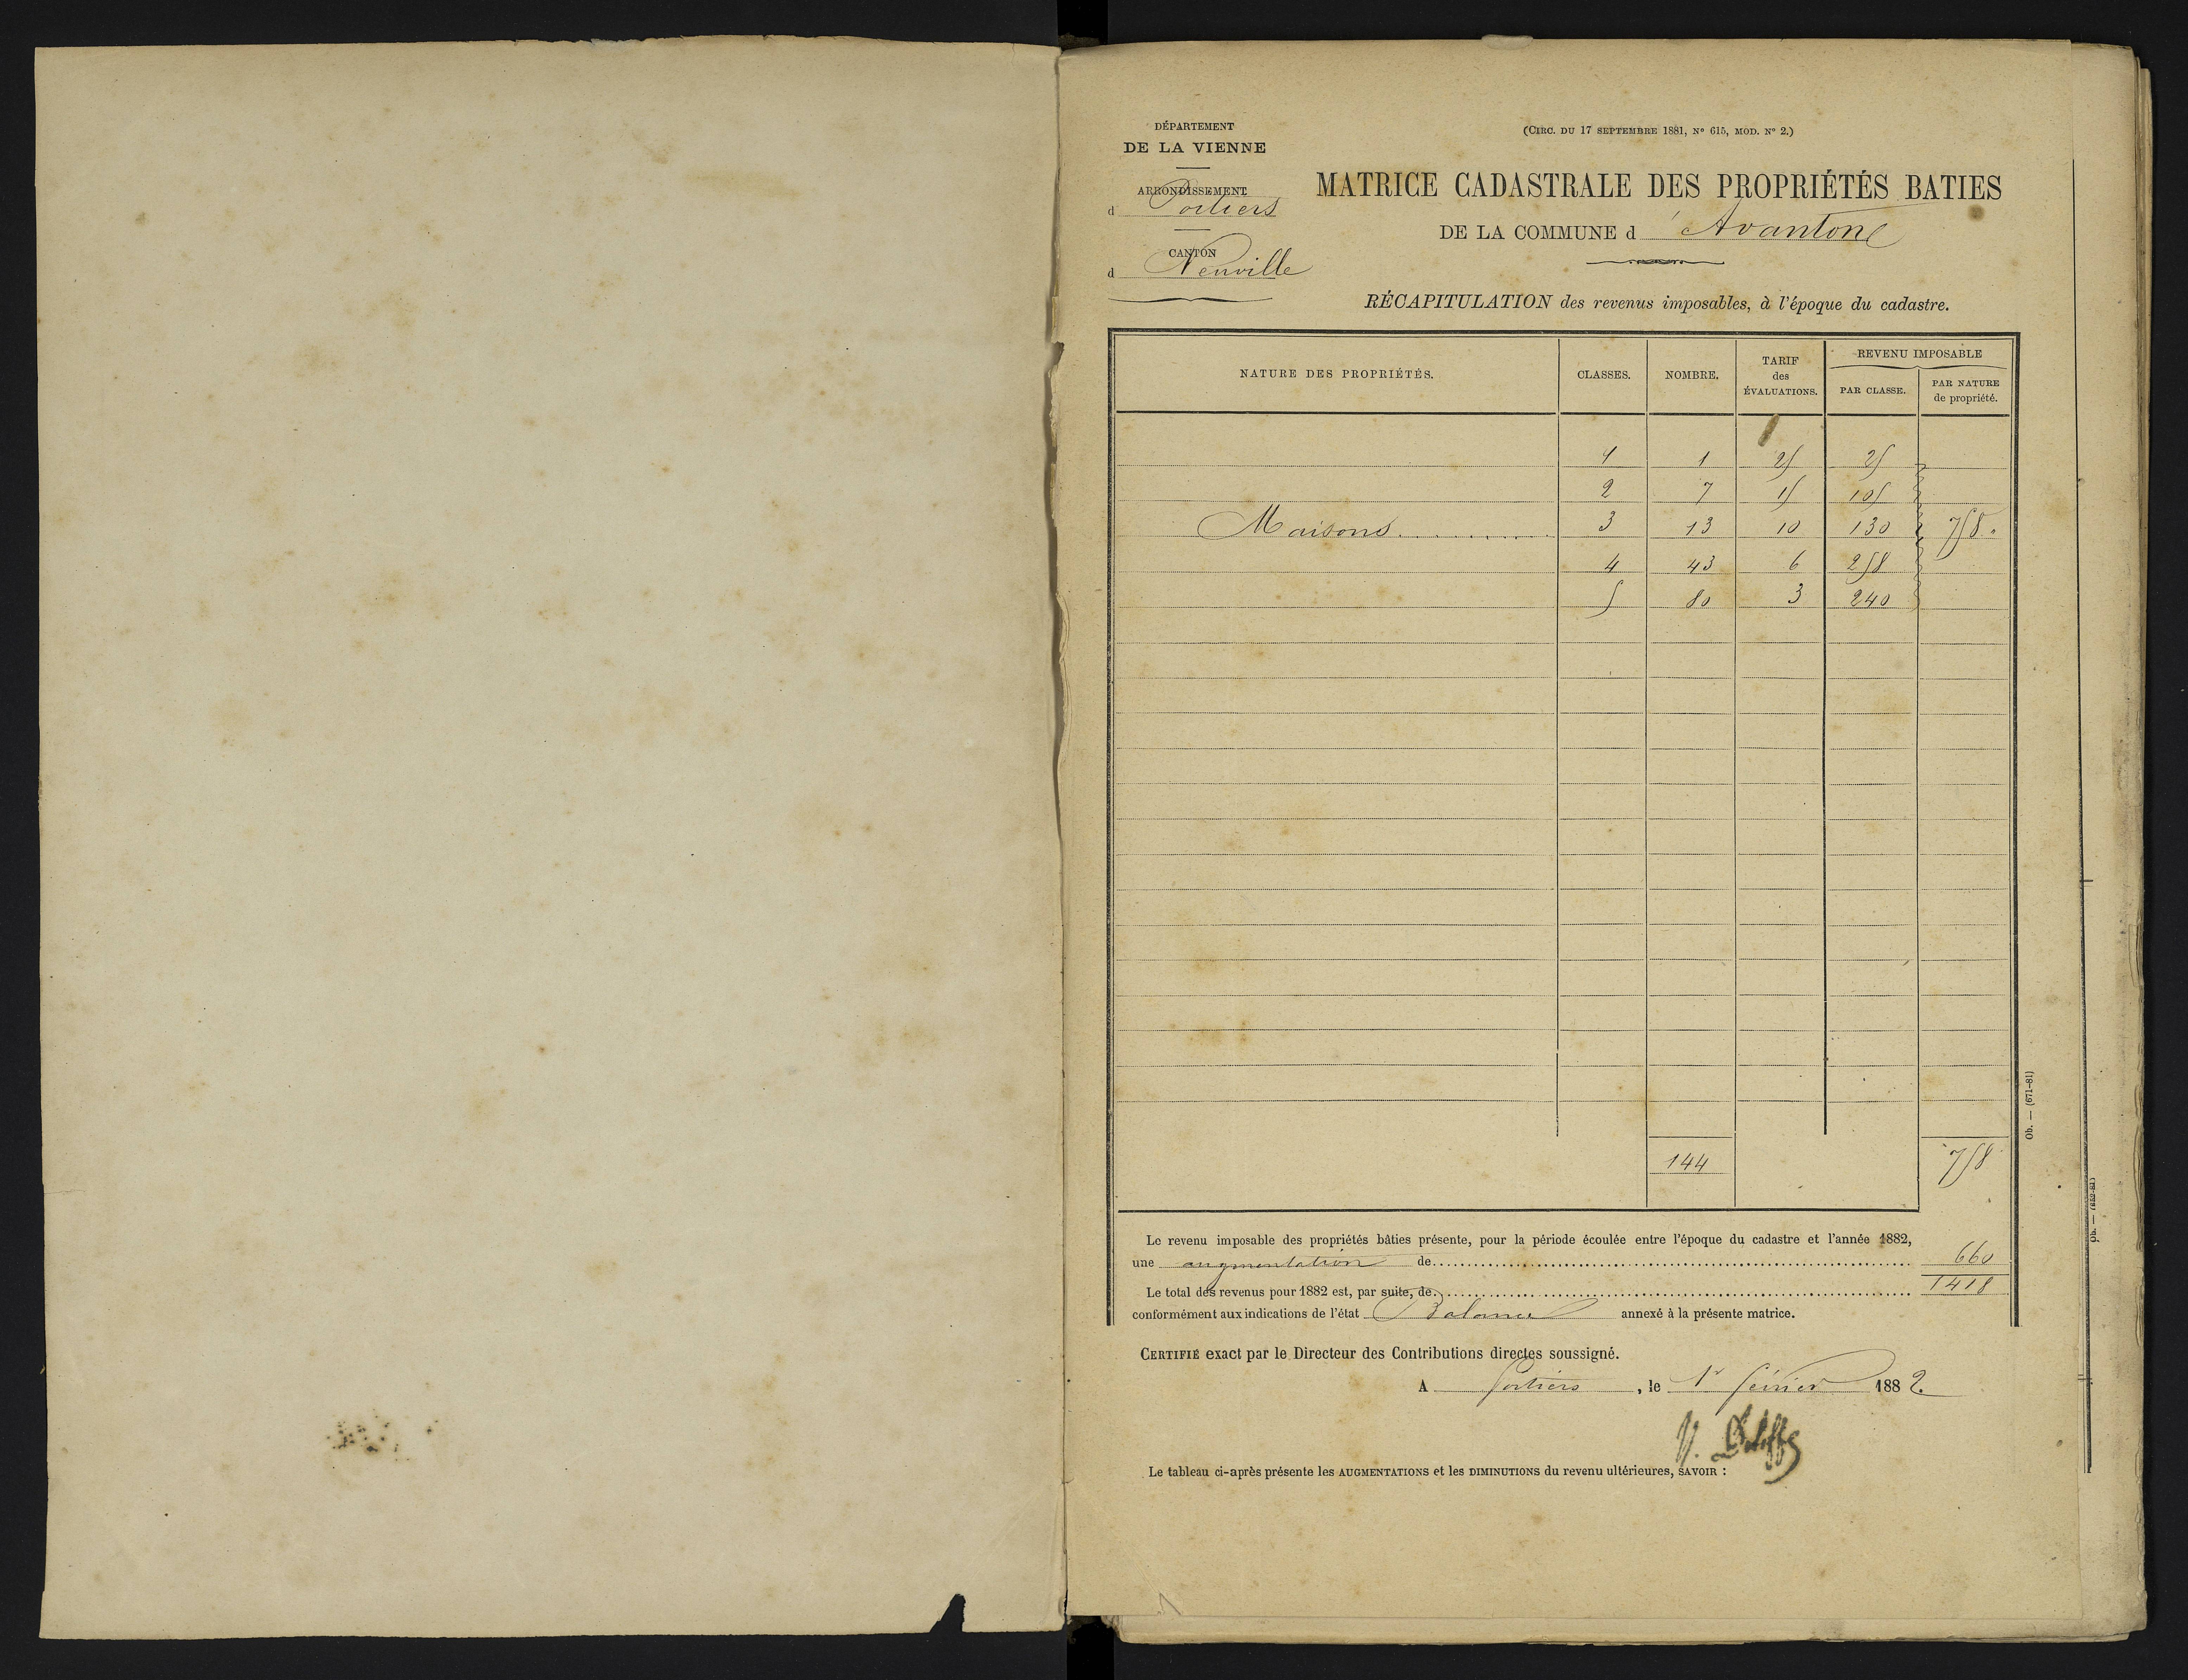 DÉPARTEMENT
DE LA VIENNE
ARRONDISSEMENT
d Poitiers
CANTON
d Neuville
(CIRC. DU 17 SEPTEMBRE 1881, N° 615, MOD. N° 2.)
MATRICE CADASTRALE DES PROPRIÉTÉS BATIES
DE LA COMMUNE d'Avanton
RÉCAPITULATION des revenus imposables, à l'époque du cadastre.
NATURE DES PROPRIÉTÉS. CLASSES. NOMBRE. TARIF des ÉVALUATIONS. REVENU IMPOSABLE PAR CLASSE. PAR NATURE de propriété.
1 1 25 25
2 7 15 105
Maisons 3 13 10 130 758
4 43 6 258
5 80 3 240
144 758
Le revenu imposable des propriétés bâties présente, pour la période écoulée entre l'époque du cadastre et l'année 1882,
une augmentation de 660
Le total des revenus pour 1882 est, par suite, de 1418
conformément aux indications de l'état Balance annexé à la présente matrice.
CERTIFIÉ exact par le Directeur des Contributions directes soussigné.
A Poitiers, le 1r février 1882.
Le tableau ci-après présente les AUGMENTATIONS et les DIMINUTIONS du revenu ultérieures, SAVOIR :
Ob. — (671-81)
Ob. — (652-81)